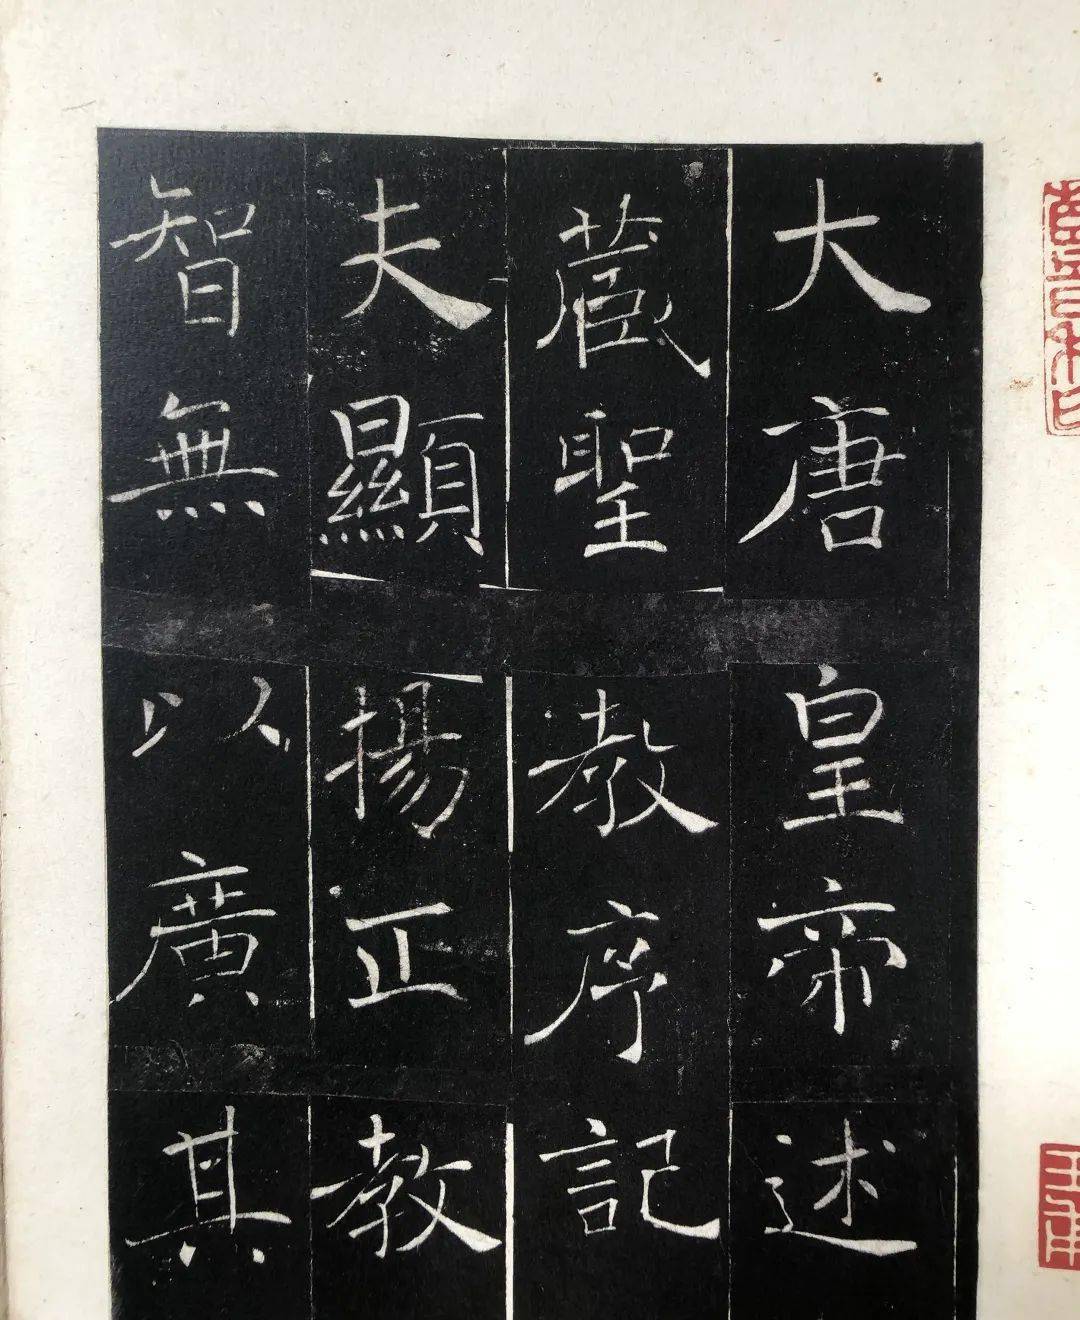 大唐皇帝述
蔵聖教序記
夫顯揚正教
智無以廣其